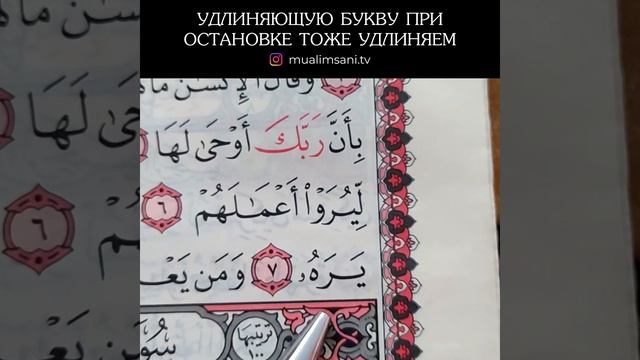 УДЛИНЯЮЩУЮ БУКВУ ПРИ
ОСТАНОВКЕ ТОЖЕ УДЛИНЯЕМ
mualimsani.tv
وَقَالَ ٱلْإِنسَٰنُ
بِأَنَّ رَبَّكَ أَوْحَىٰ لَهَا
لِّيُرَوْا۟ أَعْمَٰلَهُمْ ٦
يَرَهُۥ ٧ وَمَن يَعْ
ترتيبها
١٠٠